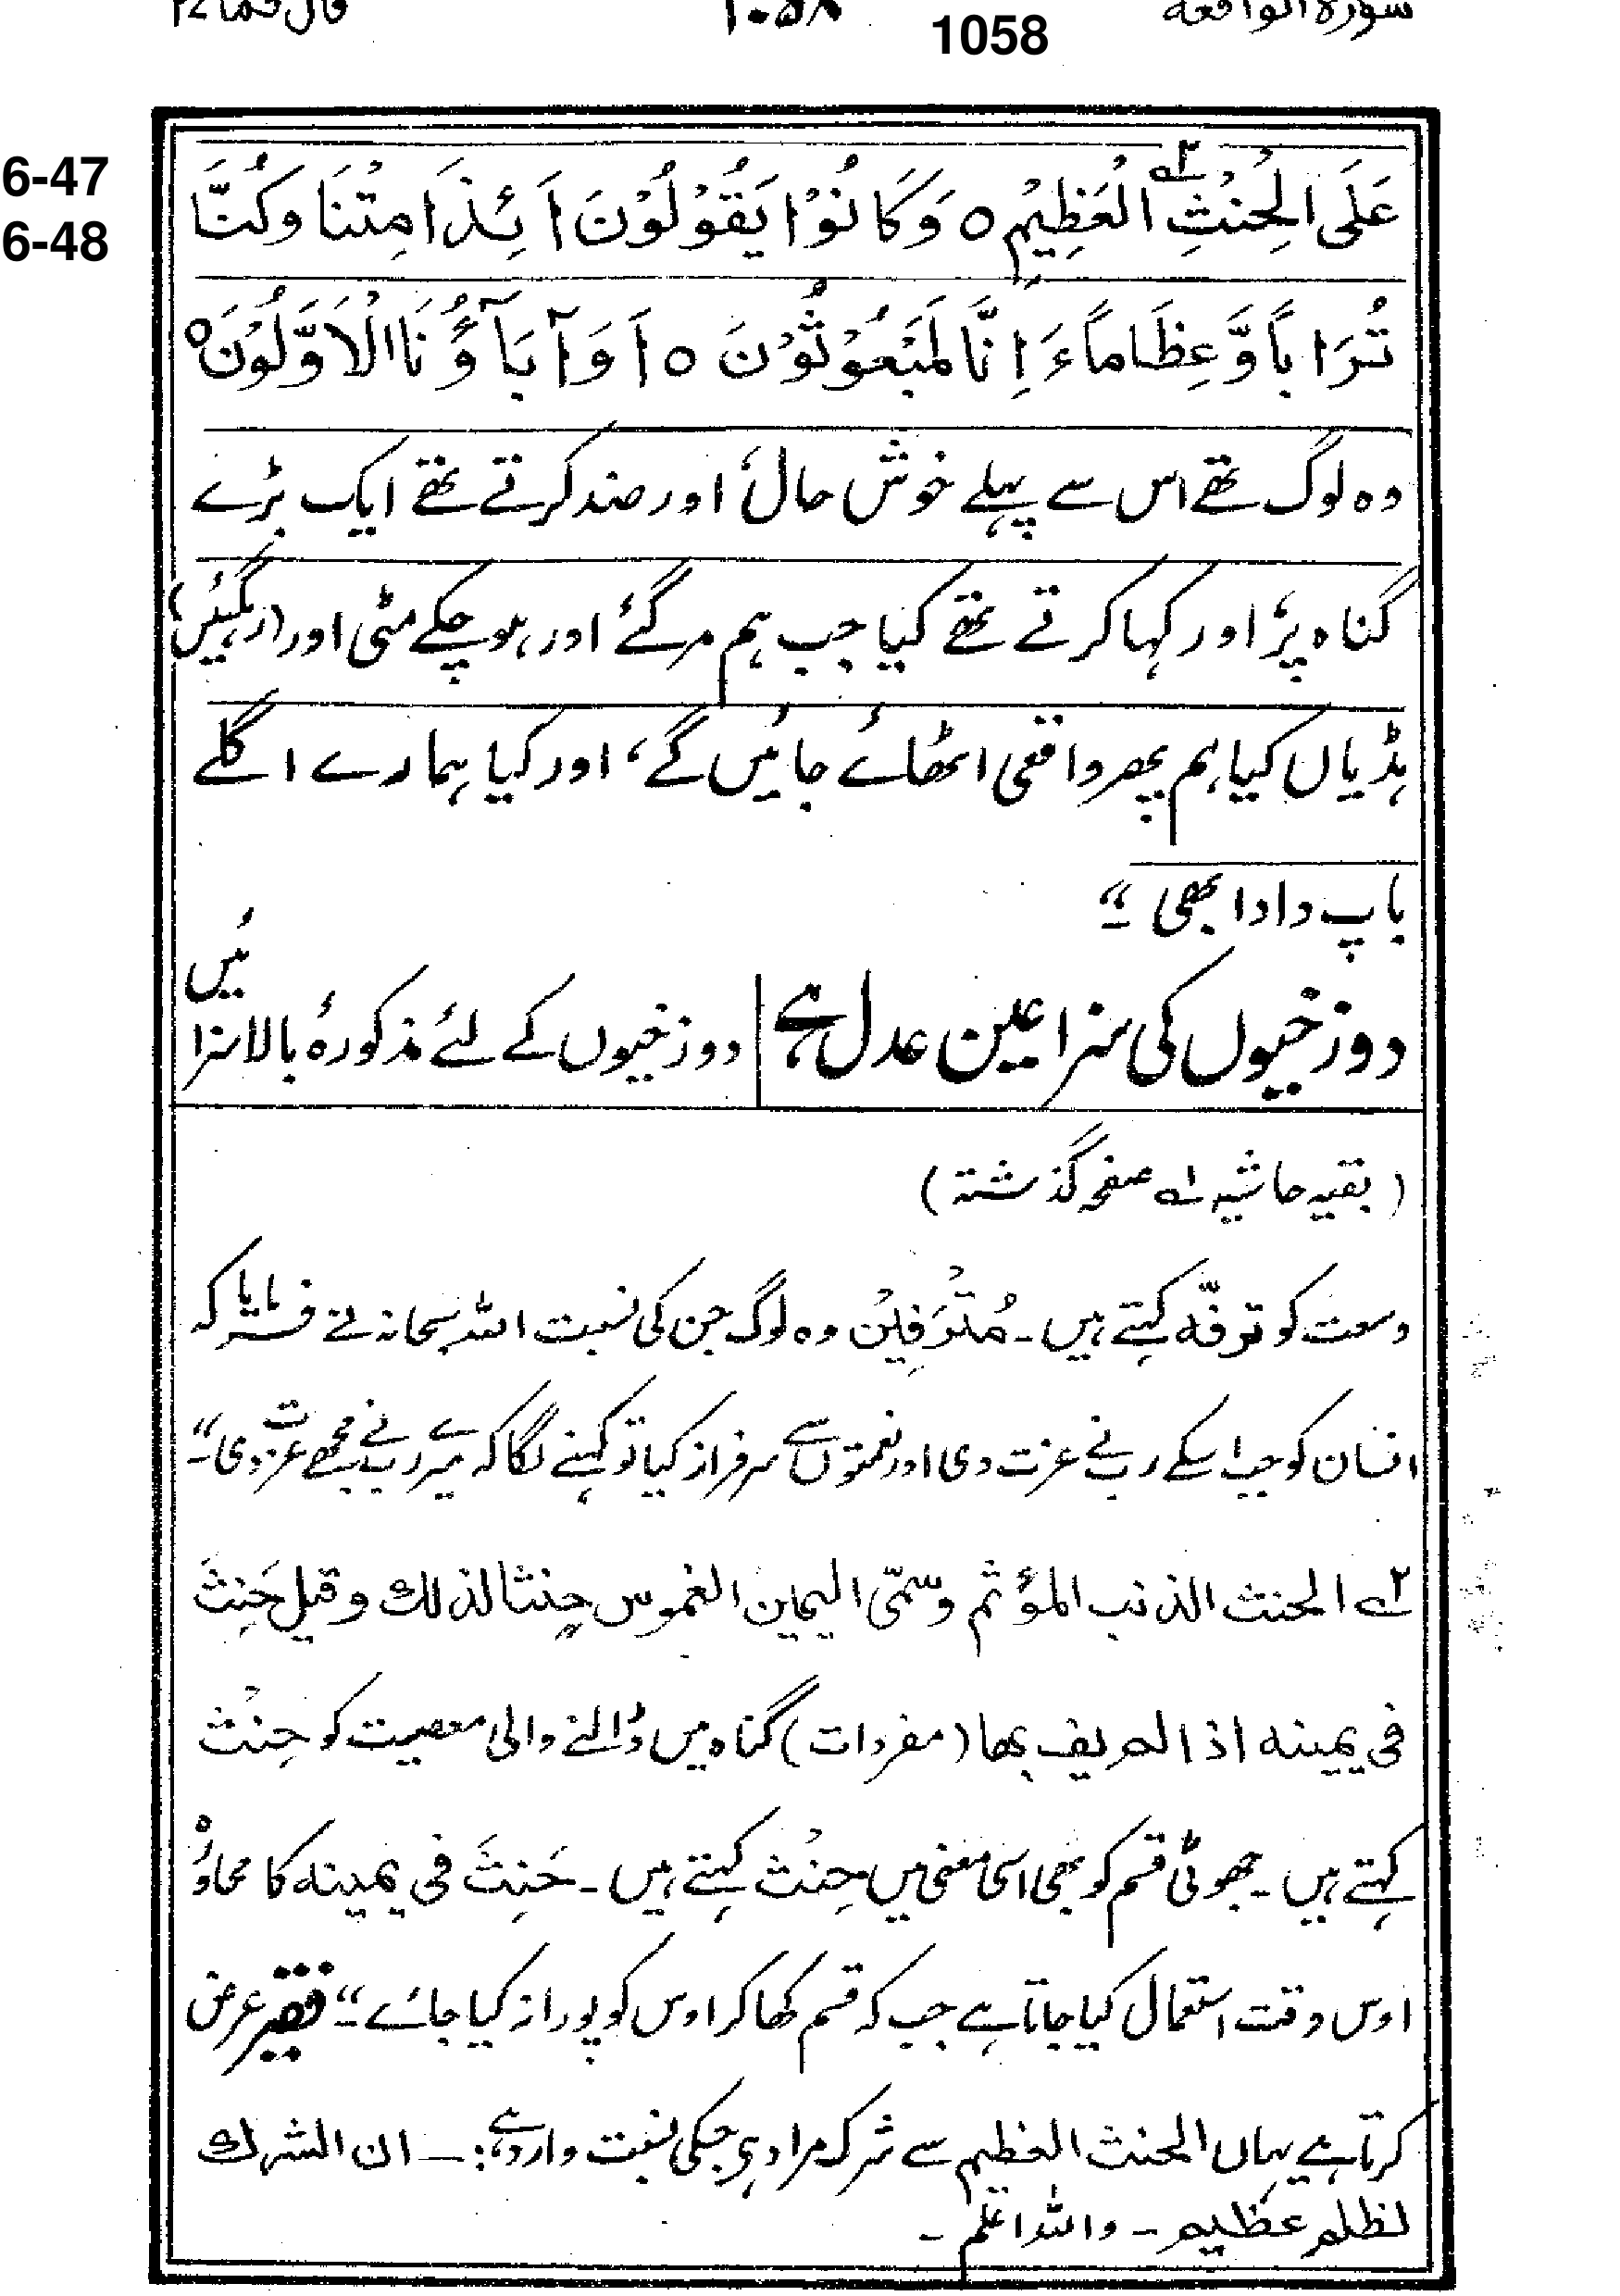 سورة الواقعة ١٠٥٨ 1058 قال فما ٢٤
6-47
6-48
عَلَى الْحِنْثِ ٢؎ الْعَظِيْمِ ٥ وَكَانُوْا يَقُوْلُوْنَ اَئِذَا مِتْنَا وَكُنَّا
تُرَاباً وَّعِظَاماً ءَ اِنَّا لَمَبْعُوْثُوْنَ ٥ اَوَآبَآؤُنَا الْاَوَّلُوْنَ ٥
وہ لوگ تھے اس سے پہلے خوش حال، اور ضد کرتے تھے ایک بڑے
گناہ پر، اور کہا کرتے تھے کیا جب ہم مرگئے اور ہو چکے مٹی اور
ہڈیاں کیا ہم پھر واقعی اٹھائے جائیں گے، اور کیا ہمارے اگلے
باپ دادا بھی ۔“
دوزخیوں کی سزا عین عدل ہے | دوزخیوں کے لئے مذکورۂ بالا سزائیں
( بقیہ حاشیہ ١؎ صفحہ گذشتہ )
وسعت کو ترفّہ کہتے ہیں ۔ مُتْرَفِیْن وہ لوگ جن کی نسبت اللہ سبحانہ نے فرمایا کہ
انسان کو جب اسکے رب نے عزت دی اور نعمتوں سے سرفراز کیا تو کہنے لگا کہ میرے رب نے مجھے عزت دی ۔“
٢؎ الحنث الذنب المؤثم وسمّی الیمین الغموس حِنثا لذلك وقیل حَنِثَ
فی یمینہ اذا لم یف بها (مفردات) گناہ میں ڈالنے والی معصیت کو حِنْث
کہتے ہیں ۔ جھوٹی قسم کو بھی اسی معنی میں حِنْث کہتے ہیں ۔ حَنِثَ فی یمینہ کا محاورہ
اوس وقت استعمال کیا جاتا ہے جب کہ قسم کھا کر اوس کو پورا نہ کیا جائے ۔“ فقیر عرض
کرتا ہے یہاں الحنث العظیم سے شرک مراد ہے جسکی نسبت وارد ہے :۔ ان الشرك
لظلم عظیم ۔ واللہ اعلم ۔